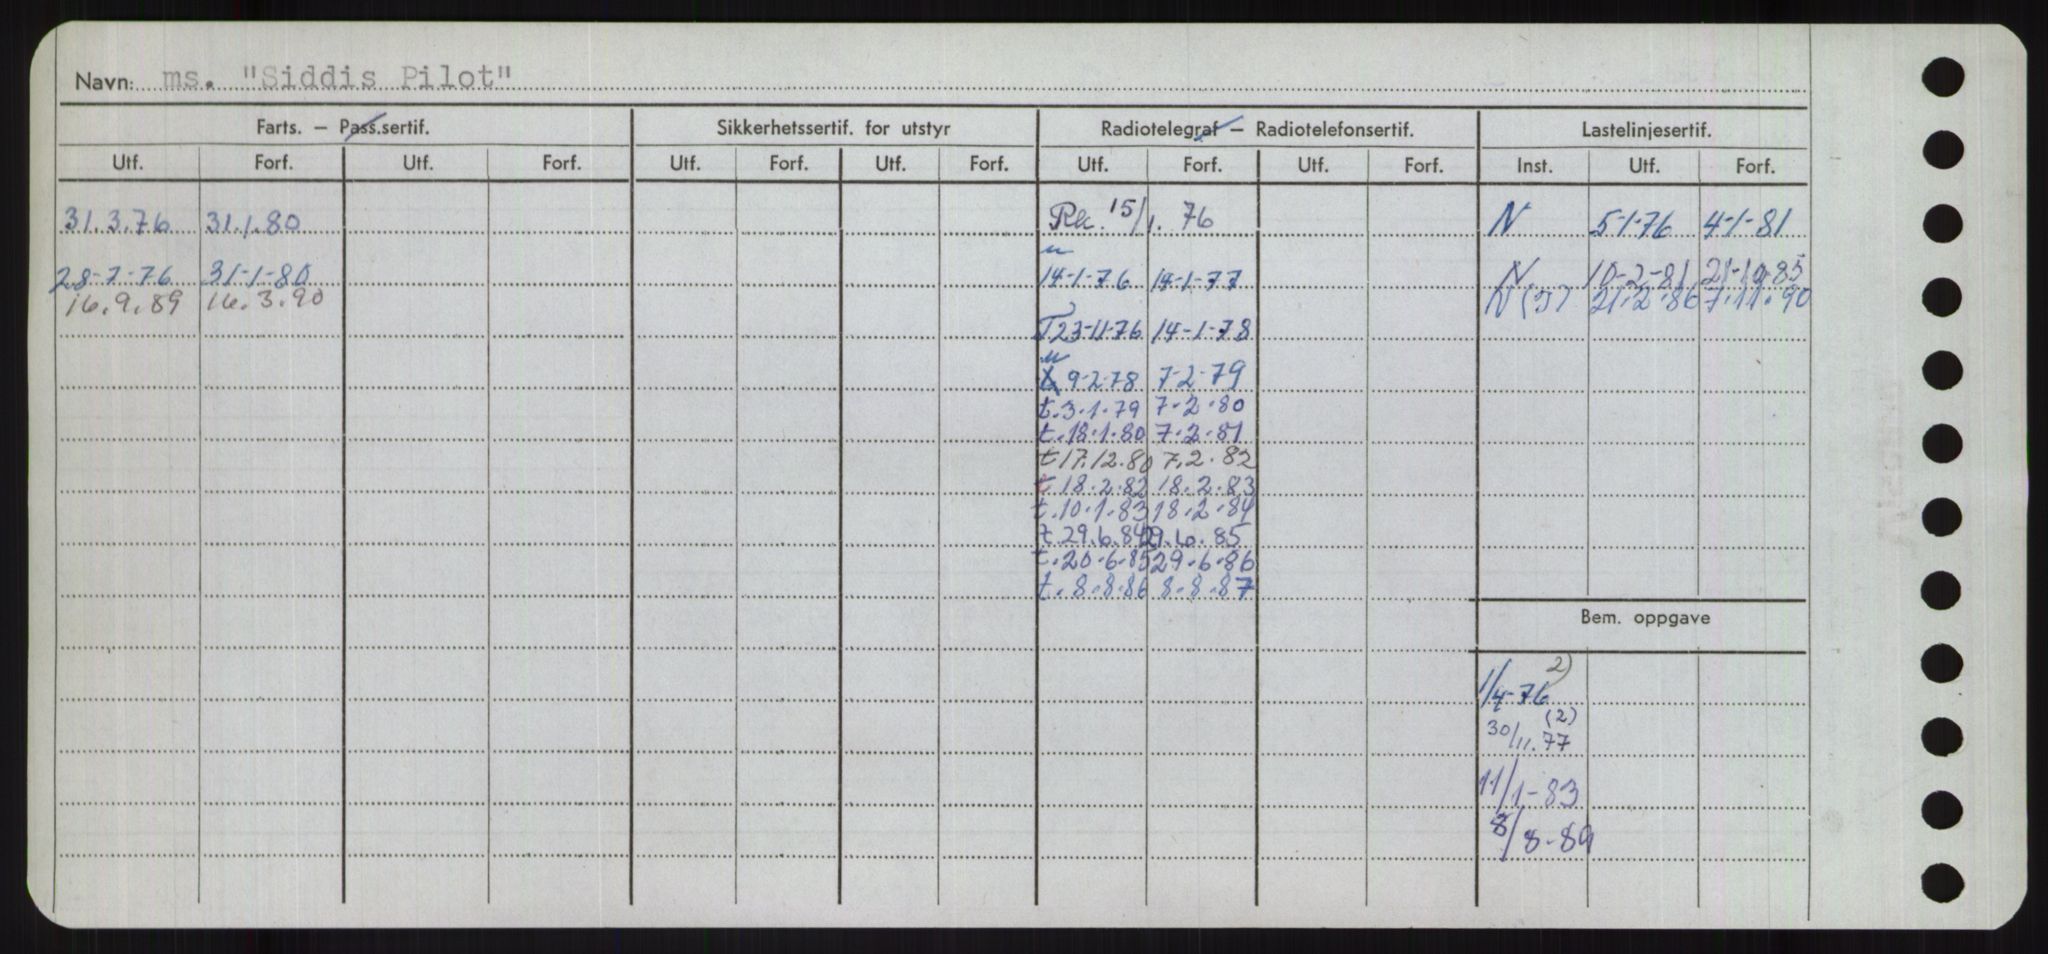 Navn: ms. "Siddis Pilot"
Farts. – Pass.sertif. Sikkerhetssertif. for utstyr Radiotelegraf – Radiotelefonsertif. Lastelinjesertif.
Utf. Forf. Utf. Forf. Utf. Forf. Utf. Forf. Utf. Forf. Utf. Forf. Inst. Utf. Forf.
31.3.76 31.1.80 15/1.76 N 5-1-76 4-1-81
28-7-76 31-1-80 14-1-76 14-1-77 N 10-2-81 21-10-85
16.9.89 16.3.90 N (5) 21.2.86 7.11.90
T 23-11-76 14-1-78
9-2-78 7-2-79
t.3.1.79 7.2.80
t.18.1.80 7.2.81
t 17.12.80 7.2.82
t 18.2.82 18.2.83
t.10.1.83 18.2.84
t.29.6.84 29.6.85
t.20.6.85 29.6.86
t.8.8.86 8.8.87
Bem. oppgave
1/4-76 2)
30/11.77 (2)
11/1-83
8/8-89